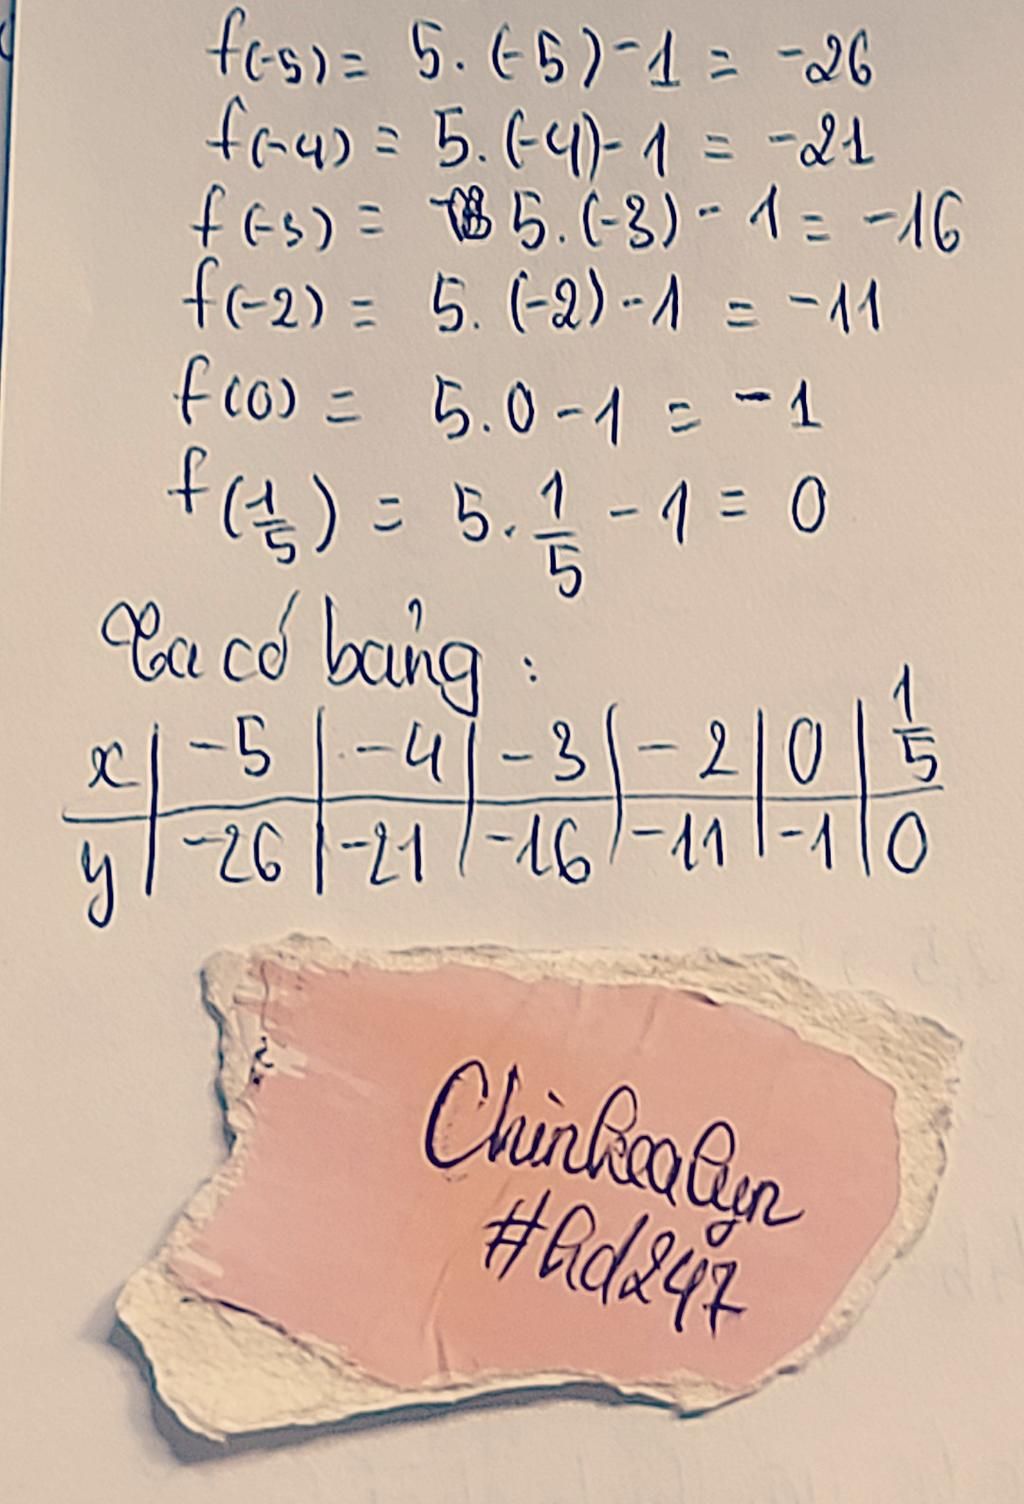 f(-5) = 5. (-5) - 1 = -26
f(-4) = 5. (-4) - 1 = -21
f(-3) = 5. (-3) - 1 = -16
f(-2) = 5. (-2) - 1 = -11
f(0) = 5.0 - 1 = -1
f(1/5) = 5. 1/5 - 1 = 0
Ta có bảng :
x | -5 | -4 | -3 | -2 | 0 | 1/5
y | -26 | -21 | -16 | -11 | -1 | 0
#hd247